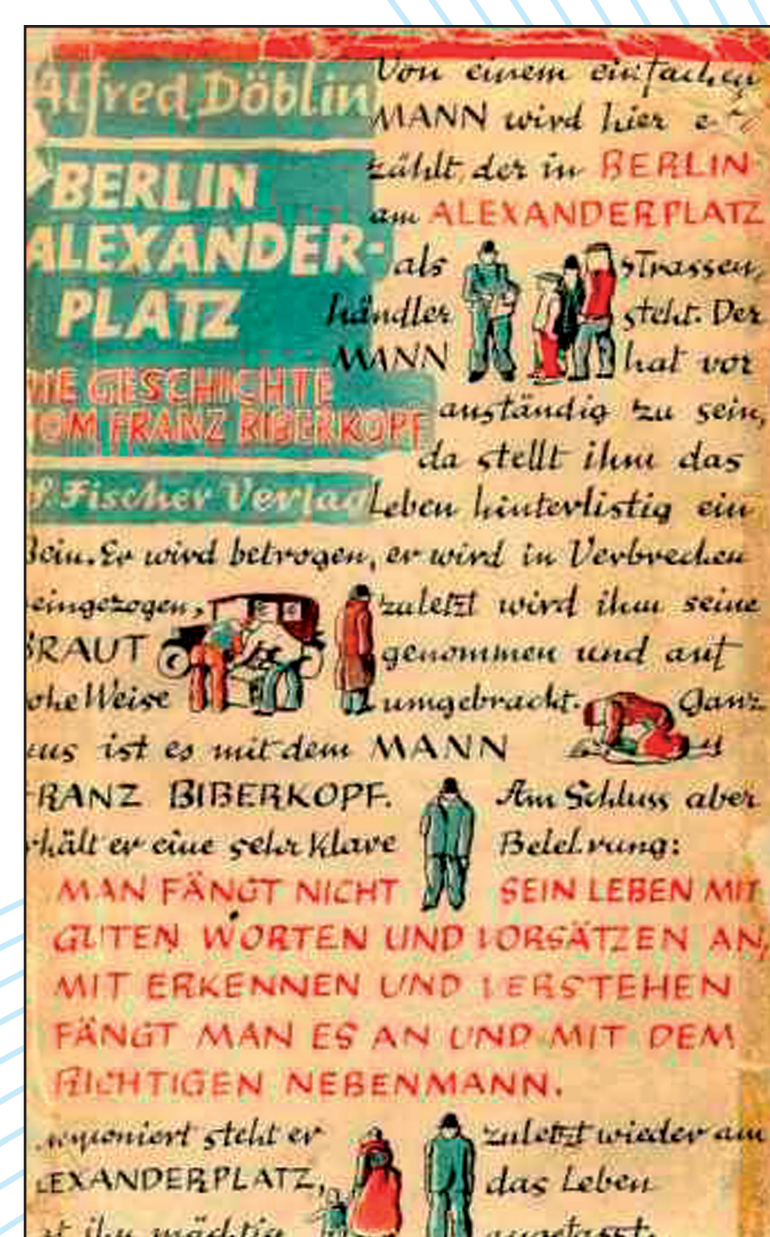 Alfred Döblin
BERLIN
ALEXANDER-
PLATZ
IE GESCHICHTE
OM FRANZ BIBERKOPF
S. Fischer Verlag
Von einem einfachen
MANN wird hier er
zählt, der in BERLIN
am ALEXANDERPLATZ
als Strassen,
händler steht. Der
MANN hat vor
anständig zu sein,
da stellt ihm das
Leben hinterlistig ein
Bein. Er wird betrogen, er wird in Verbrechen
eingezogen, zuletzt wird ihm seine
BRAUT genommen und auf
ohe Weise umgebracht. Ganz
aus ist es mit dem MANN
FRANZ BIBERKOPF. Am Schluss aber
rhält er eine sehr klare Belehrung:
MAN FÄNGT NICHT SEIN LEBEN MIT
GUTEN WORTEN UND VORSÄTZEN AN,
MIT ERKENNEN UND VERSTEHEN
FÄNGT MAN ES AN UND MIT DEM
RICHTIGEN NEBENMANN.
steht er zuletzt wieder am
LEXANDERPLATZ, das Leben
at ihn mächtig angefasst.